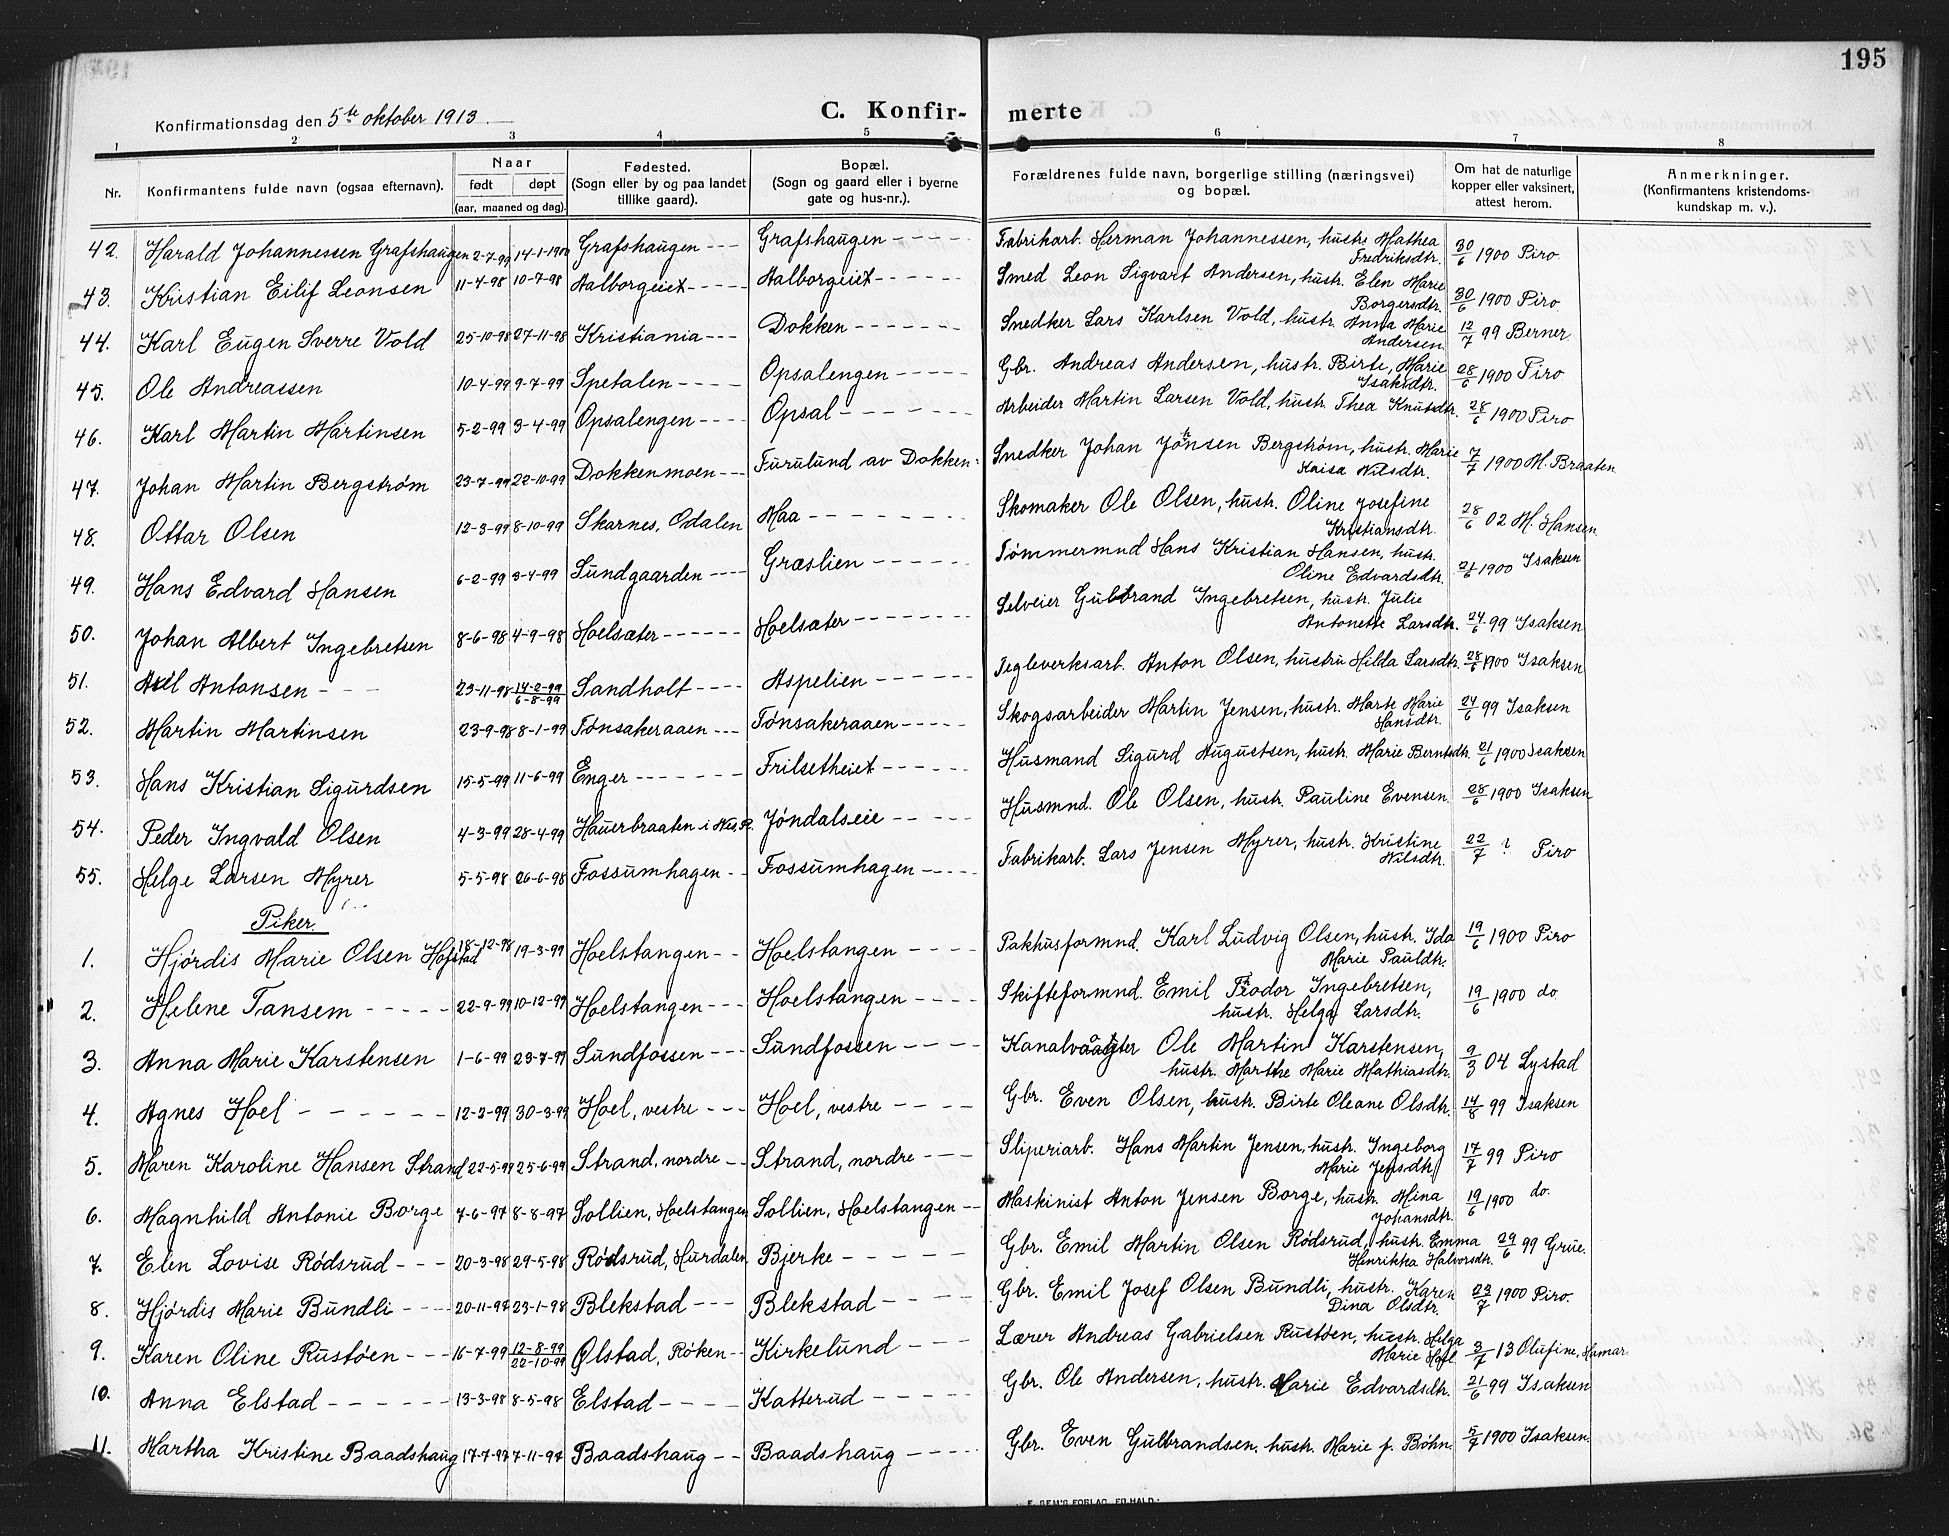 195
Konfirmationsdag den 5te oktober 1913.
C. Konfir- merte
1 2 3 4 5 6 7 8
Nr. Konfirmantens fulde navn (ogsaa efternavn). Naar født døpt (aar, maaned og dag). Fødested. (Sogn eller by og paa landet tillike gaard). Bopæl. (Sogn og gaard eller i byerne gate og hus-nr.). Forældrenes fulde navn, borgerlige stilling (næringsvei) og bopæl. Om hat de naturlige kopper eller vaksinert, attest herom. Anmerkninger. (Konfirmantens kristendoms-kundskap m. v.).
42. Harald Johannessen Grafshaugen 2-7-99 14-1-1900 Grafshaugen --- Grafshaugen ---- Fabrikarb. Herman Johannessen, hustr. Mathea Fredriksdtr. 30/6 1900 Piro
43. Kristian Eilif Leonsen 11-4-98 10-7-98 Aalborgeiet ---- Aalborgeiet ---- Smed Leon Sigvart Andersen, hustr. Elen Marie Borgersdtr. 30/6 1900 Piro
44. Karl Eugen Sverre Vold 25-10-98 27-11-98 Kristiania --- Dokken ----- Snedker Lars Karlsen Vold, hustr. Anna Marie Andersen. 12/7 99 Berner
45. Ole Andreassen 10-4-99 9-7-99 Spetalen ---- Opsalengen ---- Gbr. Andreas Andersen, hustr. Birte, Marie Isaksdtr. 28/6 1900 Piro
46. Karl Martin Martinsen 5-2-99 3-4-99 Opsalengen --- Opsal ------ Arbeider Martin Larsen Vold, hustr. Thea Knutsdtr. 28/6 1900 Piro
47. Johan Martin Bergstrøm 23-7-99 22-10-99 Dokkenmoen --- Furulund av Dokken- Snedker Johan Johnsen Bergstrøm, hustr. Marie Kaisa Nilsdtr. 7/7 1900 M. Braaten
48. Ottar Olsen 12-3-99 8-10-99 Skarnes, Odalen Maa ------ Skomaker Ole Olsen, hustr. Oline Josefine Kristiansdtr. 28/6 02 M. Hansen
49. Hans Edvard Hansen 6-2-99 3-4-99 Sundgaarden ---- Græslien ----- Tømmermnd Hans Kristian Hansen, hustr. Oline Edvardsdtr. 21/6 1900 Isaksen
50. Johan Albert Ingebretsen 8-6-98 4-9-98 Hoelsæter ------ Hoelsæter ------ Selveier Gulbrand Ingebretsen, hustr. Julie Antonette Larsdtr. 24/6 99 Isaksen
51. Axel Antonsen --- 23-11-98 14-2-99 6-8-99 Sandholt ---- Aspelien ----- Tegleverksarb. Anton Olsen, hustru Hilda Larsdtr. 28/6 1900 Isaksen
52. Martin Martinsen 23-9-98 8-1-99 Tønsakeraaen --- Tønsakeraaen ---- Skogsarbeider Martin Jensen, hustr. Marte Marie Hansdtr. 24/6 99 Isaksen
53. Hans Kristian Sigurdsen 15-5-99 11-6-99 Enger ------ Frilsetheiet ---- Husmand Sigurd Augustsen, hustr. Marie Berntsdtr. 21/6 1900 Isaksen
54. Peder Ingvald Olsen 4-3-99 28-4-99 Hauerbraaten i Nes, R. Jøndalseie ---- Husmnd. Ole Olsen, hustr. Pauline Evensen. 28/6 1900 Isaksen
55. Helge Larsen Myrer 5-5-98 26-6-98 Fossumhagen -- Fossumhagen ---- Fabrikarb. Lars Jensen Myrer, hustr. Kristine Nilsdtr. 22/7 ? Piro
Piker.
1. Hjørdis Marie Olsen Hofstad 18-12-98 19-3-99 Hoelstangen -- Hoelstangen ---- Pakhusformnd. Karl Ludvig Olsen, hustr. Ida Marie Pauldtr. 19/6 1900 Piro
2. Helene Tansem ----- 22-9-99 10-12-99 Hoelstangen --- Hoelstangen ---- Skifteformnd. Emil Feodor Ingebretsen, hustr. Helga Larsdtr. 19/6 1900 do.
3. Anna Marie Karstensen 1-6-99 23-7-99 Sundfossen --- Sundfossen ---- Kanalvogter Ole Martin Karstensen, hustr. Marthe Marie Mathiasdtr. 9/3 04 Lystad
4. Agnes Hoel ------ 12-2-99 30-3-99 Hoel, vestre --- Hoel, vestre ---- Gbr. Even Olsen, hustr. Birte Oleane Olsdtr. 14/8 99 Isaksen
5. Maren Karoline Hansen Strand 22-5-99 25-6-99 Strand, nordre -- Strand, nordre --- Sliperiarb. Hans Martin Jensen, hustr. Ingeborg Marie Jensdtr. 17/7 99 Piro
6. Magnhild Antonie Borge 7-6-97 8-8-97 Sollien, Hoelstangen Sollien, Hoelstangen -- Maskinist Anton Jensen Borge, hustr. Mina Johansdtr. 19/6 1900 do.
7. Elen Lovise Rødsrud --- 20-3-98 29-5-98 Rødsrud, Hurdalen Bjerke ----- Gbr. Emil Martin Olsen Rødsrud, hustr. Emma Henrikka Halvorsdtr. 29/6 99 Grue.
8. Hjørdis Marie Bundli ---- 20-11-97 23-1-98 Blekstad --- Blekstad ---- Gbr. Emil Josef Olsen Bundli, hustr. Karen Dina Olsdtr. 23/7 1900 Piro.
9. Karen Oline Rustøen --- 16-7-99 12-8-99 22-10-99 Ølstad, Røken -- Kirkelund --- Lærer Andreas Gabrielsen Rustøen, hustr. Helga Marie Hofl. 3/7 13 Olufine, Hamar
10. Anna Elstad ------ 13-3-98 8-5-98 Elstad ---- Katterud ---- Gbr. Ole Andersen, hustr. Marie Edvardsdtr. 21/6 99 Isaksen
11. Martha Kristine Baadshaug 17-7-97 7-11-97 Baadshaug -- Baadshaug ---- Gbr. Even Gulbrandsen, hustr. Marie f. Bøhn. 5/7 1900 Isaksen.